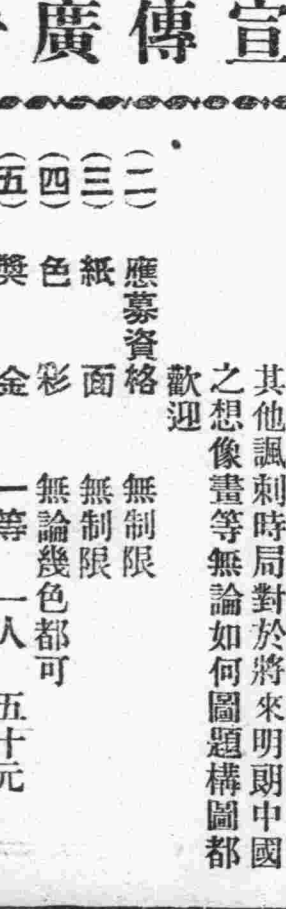 宣傳廣
其他諷刺時局對於將來明朗中國
之想像畫等無論如何圖題構圖都
歡迎
(二) 應募資格 無制限
(三) 紙面 無制限
(四) 色彩 無論幾色都可
(五) 獎金 一等 一人 五十元